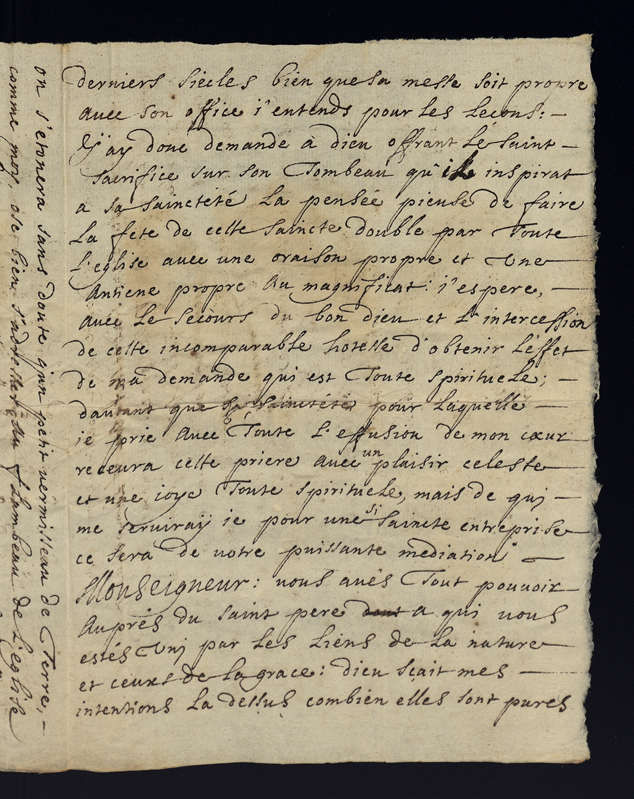 derniers siecles bien que sa messe soit propre
avec son office j'entends pour les lecons: —
j'ay donc demande a dieu offrant le saint —
sacrifice sur son Tombeau qu'il inspirat
a sa saincteté la pensée pieuse de faire
la fete de cette saincte double par Toute
l'eglise avec une oraison propre et une
antiene propre au magnificat: j'espere, —
avec le secours du bon dieu et l'intercession
de cette incomparable hotesse d'obtenir l'effet
de ma demande qui est Toute spirituele; —
dautant que sa saincteté pour laquelle —
je prie avec Toute l'effusion de mon cœur
recevra cette priere avec un plaisir celeste
et une joye Toute spirituele, mais de qui —
me serviray je pour une si saincte entreprise
ce sera de votre puissante mediation —
Monseigneur: vous avés Tout pouvoir
aupres du saint pere dont a qui vous
estés Uni par les liens de la nature
et ceux de la grace: dieu sçait mes —
intentions la dessus combien elles sont pures
on s'etonera sans doute q'un petit vermisseau de Terre, —
comme moy, ose bien s'adresser au flambeau de l'eglise